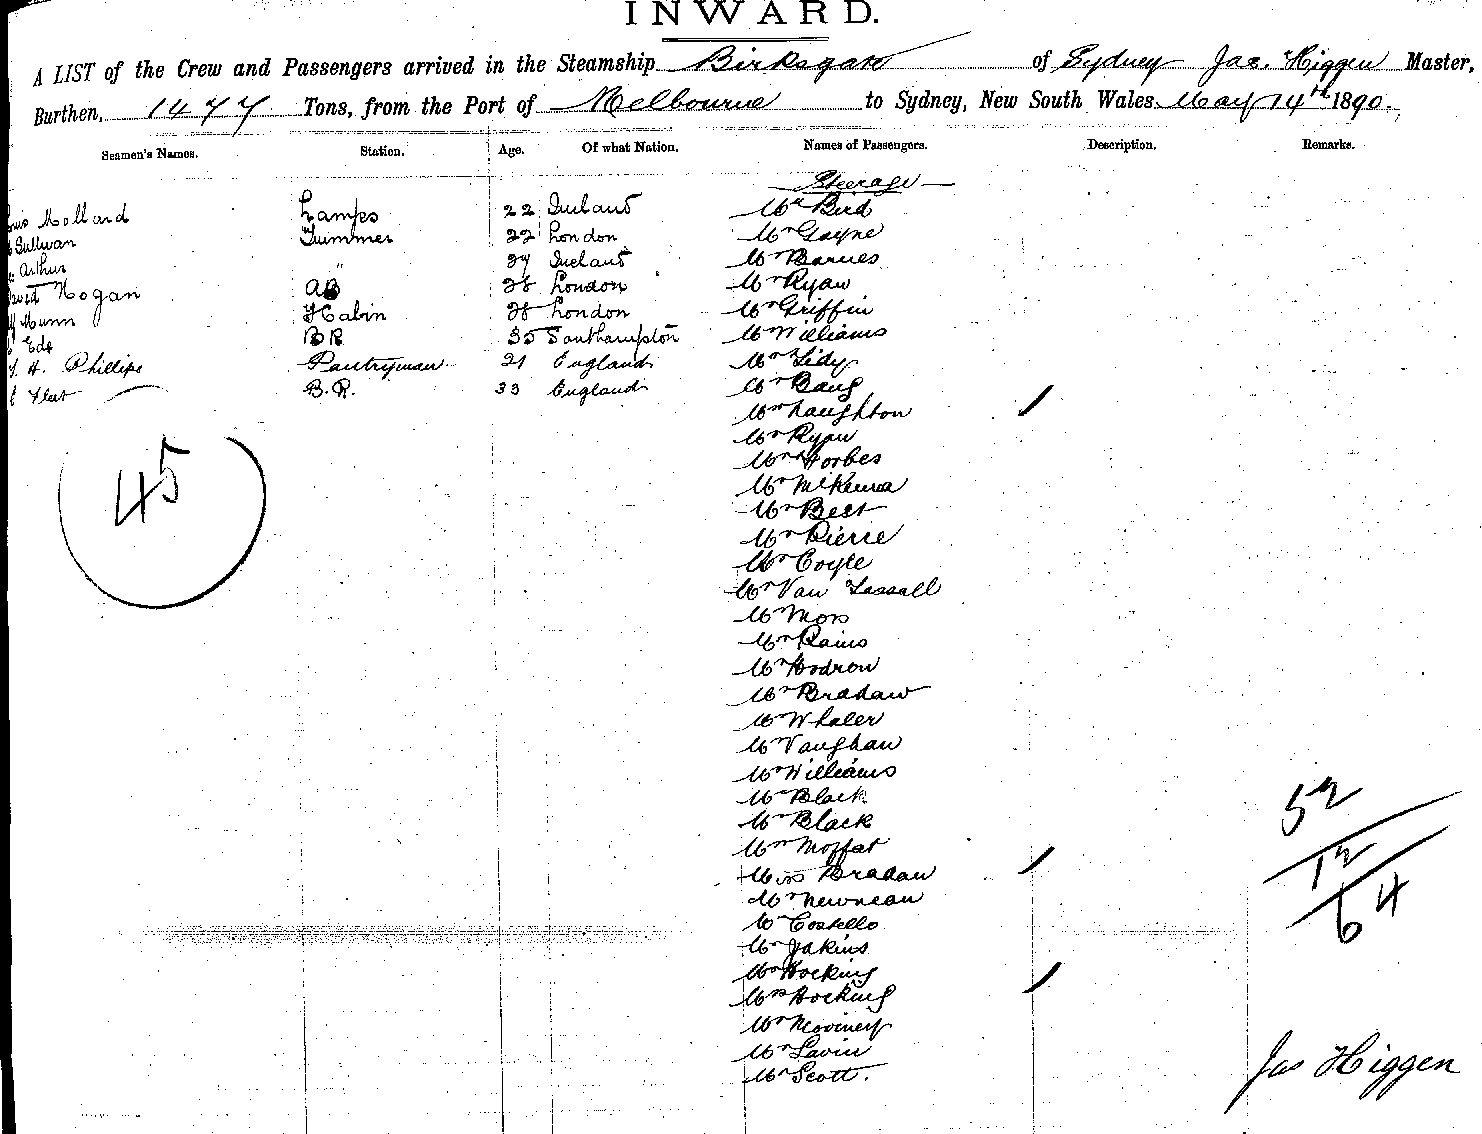 INWARD.
A LIST of the Crew and Passengers arrived in the Steamship Birksgate of Sydney Jas. Higgen Master,
Burthen, 1477 Tons, from the Port of Melbourne to Sydney, New South Wales May 14th 1890.
Seamen's Names. Station. Age. Of what Nation. Names of Passengers. Description. Remarks.
Steerage
Mollard Lamps 22 Ireland Mr Bird
Sullivan Trimmer 22 London Mr Gayne
Arthur " 27 Ireland Mr Barnes
Hogan AB 28 London Mr Ryan
Munn 28 London Mr Griffin
Ede 35 Southampton Mr Williams
H. Phillips Pantryman 21 England Mr Lidy
B.R. 33 England Mr
Mrs Laughton
Mr Ryan
Mr Forbes
Mr McKenna
Mr Best
Mr Pierce
Mr Coyle
Mr Van Tassall
Mr Moss
Mr Rains
Mr Hodron
Mr Bradaw
Mr Whaler
Mr Vaughan
Mr Williams
Mr Black
Mr Black
Mr Moffat
Miss Bradaw
Mr Newnean
Mr Costello
Mr Jakins
Mr Hocking
Mrs Hocking
Mr Moviney
Mr Lavin
Mr Scott.
45
52
12
64
Jas Higgen